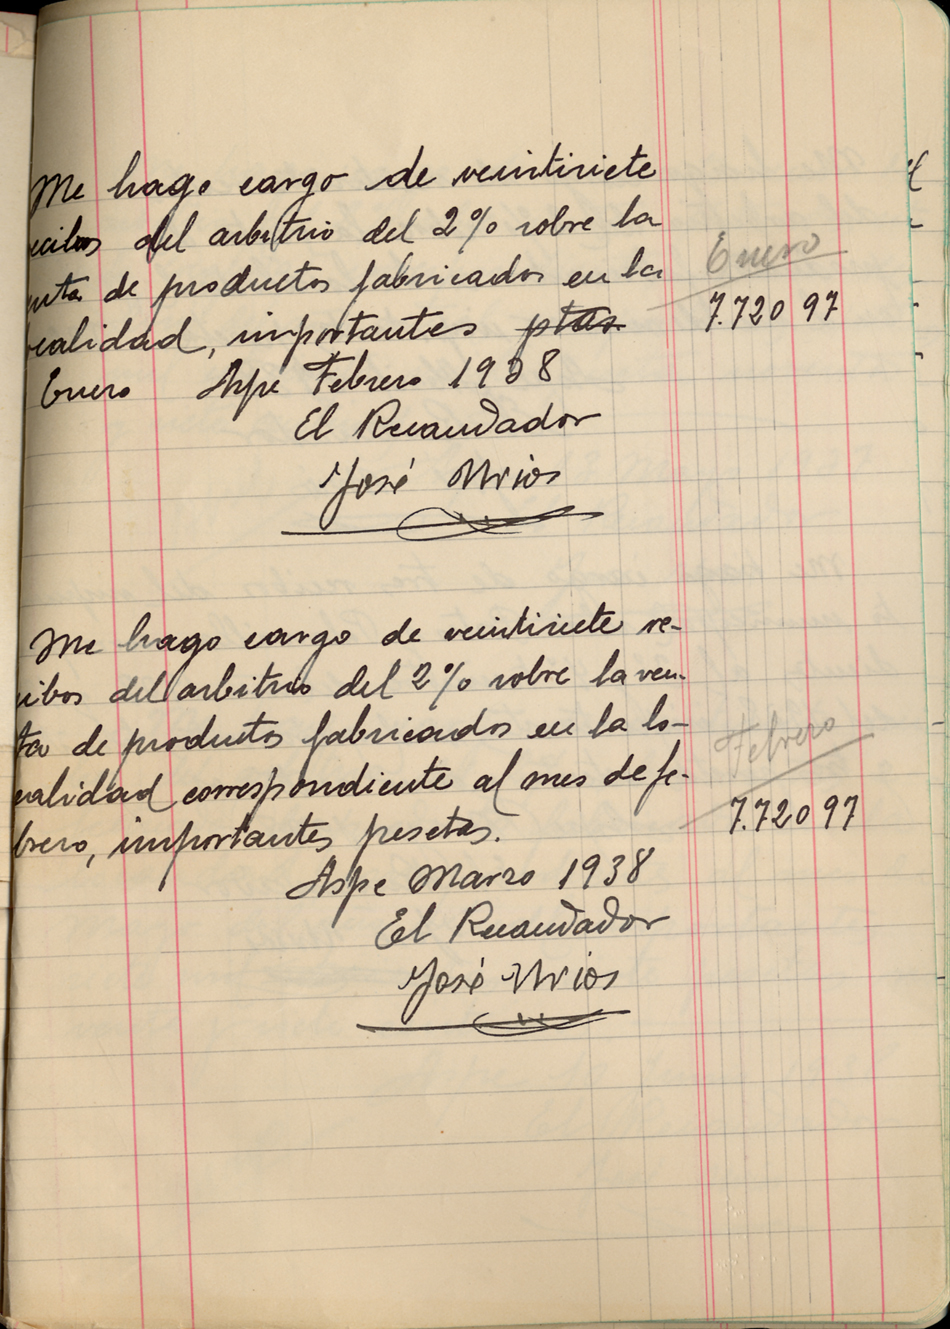 Me hago cargo de veintisiete
ecibos del arbitrio del 2% sobre la
enta de productos fabricados en la
Enero
ocalidad, importantes ptas
7.720 97
Enero Aspe Febrero 1938
El Recaudador
José Urios
Me hago cargo de veintisiete re-
cibos del arbitrio del 2% sobre la ven-
ta de productos fabricados en la lo-
Febrero
calidad correspondiente al mes de fe-
brero, importantes pesetas.
7.720 97
Aspe Marzo 1938
El Recaudador
José Urios